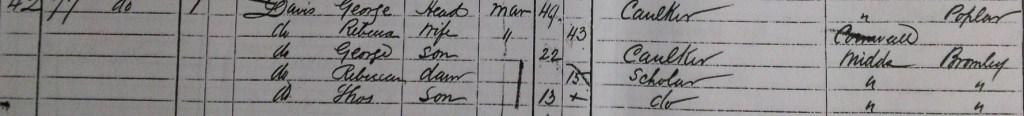 42 77 do 1 Davis George Head Mar 49 Caulker " Poplar
do Rebecca Wife " 43 Cornwall
do George Son 22 Caulker Middx Bromley
do Rebecca Daur 15 Scholar " "
do Thos Son 13 do " "